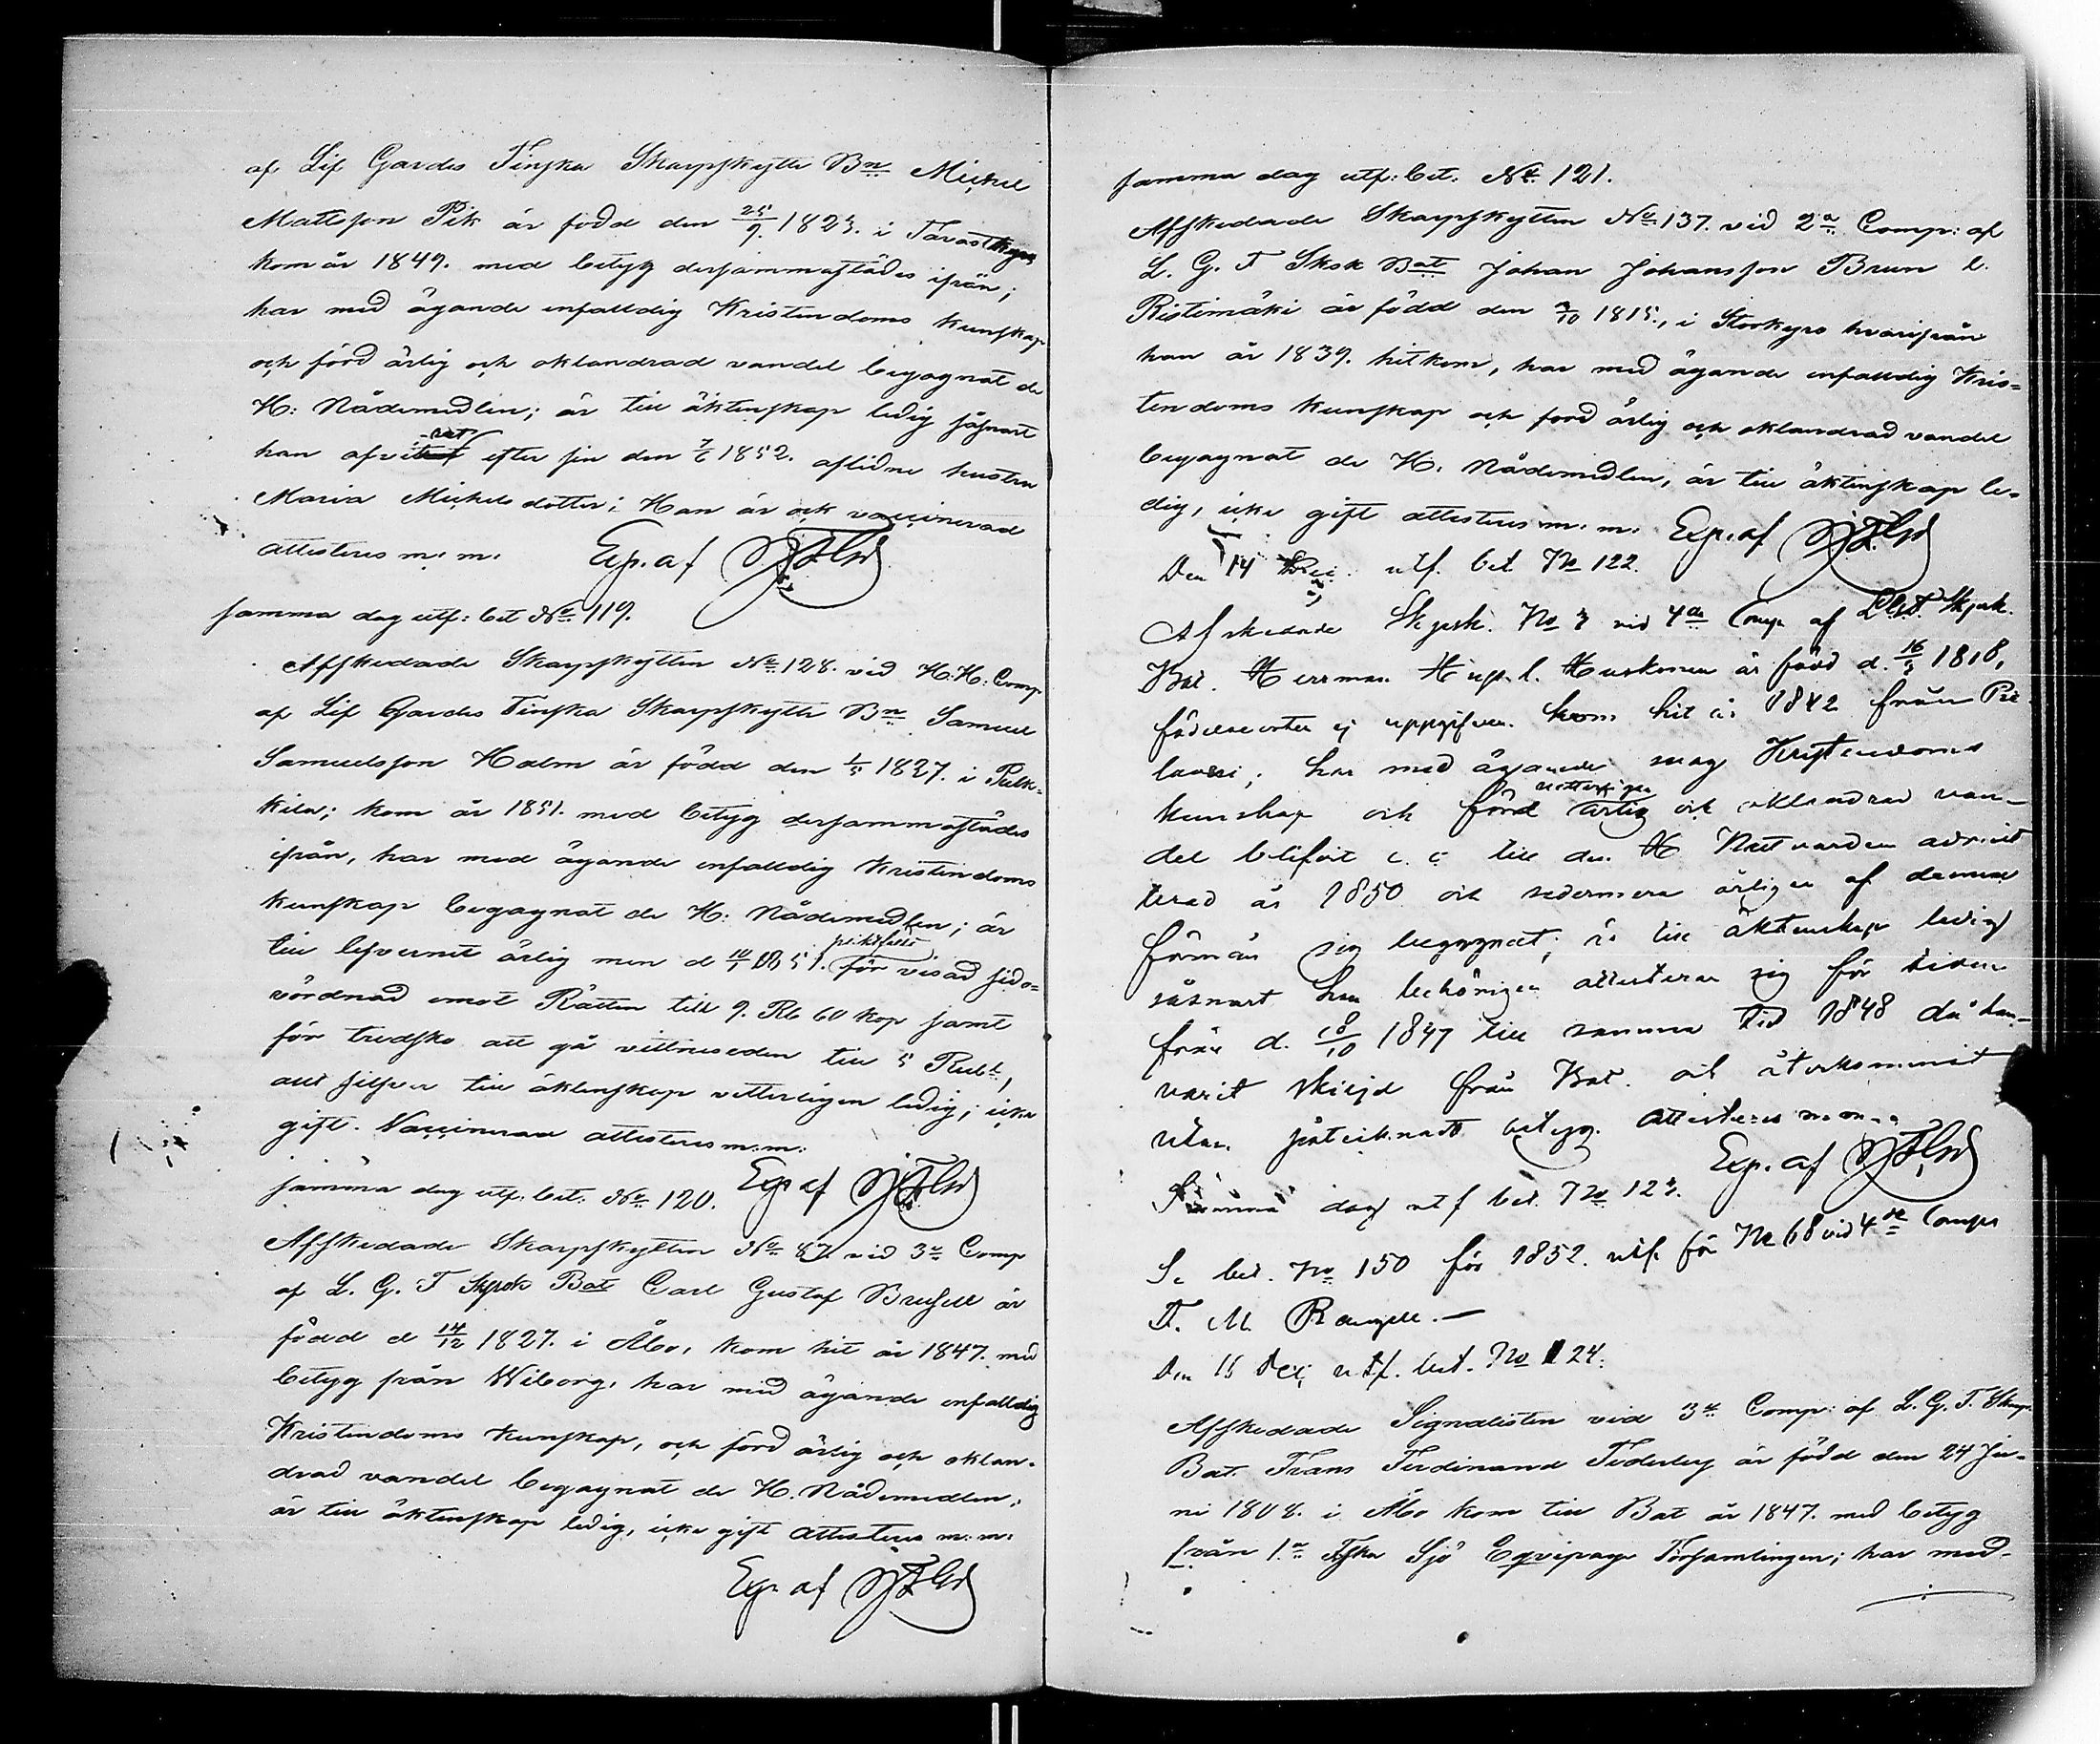 af Lif Gardes Finska Skarpskytte Bn Michel
Mattsson Pik är född den 25/9. 1823. i Tavastkyro
kom år 1849. med betyg dersammastädes ifrån;
har med ägande enfalldig Kristendoms kunskap
och förd ärlig och oklandrad vandel begagnat de
H: Nådemedlen; är till äktenskap ledig såsnart
han afvitrat efter sin den 7/6 1852. aflidne hustru
Maria Michelsdotter; Han är ock vaccinerad
attesteras m: m: Exp. af
samma dag utf: bet No 119.
Afskedade Skarpskytten No 128. vid H.H: Comp
af Lif Gardes Finska Skarpskytte Bn Samuel
Samuelsson Holm är född den 1/5 1827. i Pulk=
kila; kom år 1851. med betyg dersammastädes
ifrån, har med ägande enfalldig Kristendoms
kunskap begagnat de H: Nådemedlen; är
till lefvernet ärlig men d 14/1 1851. pliktfälld för visad sido=
vördnad emot Rätten till 9. Rb 60 kop samt
för tredsko att gå vittneseden till 5 Rub.
allt silfver till äktenskap vetterligen ledig; icke
gift. Vaccinerad attesteras m: m:
samma dag utf. bet: No 120. Exp af
Afskedade Skarpskytten No 87 vid 3e Comp
af L. G. F Skpsk Bat Carl Gustaf Brusell är
född d 14/12 1827. i Åbo, kom hit år 1847. med
betyg från Wiborg, har med ägande enfalldig
Kristendoms kunskap, och förd ärlig och oklan-
drad vandel begagnat de H. Nådemedlen;
är till äktenskap ledig, icke gift attesteras m: m:
Exp. af
samma dag utf: bet. No 121.
Afskedade Skarpskytten No 137. vid 2a Comp: af
L. G. F Sksk Bat Johan Johansson Brun l.
Ristimäki är född den 3/10 1815., i Storkyro hvarifrån
han år 1839. hitkom, har med ägande enfalldig Kris=
tendoms kunskap och förd ärlig och oklandrad vandel
begagnat de H. Nådemedlen, är till äktenskap le-
dig, icke gift attesteras m: m: Exp. af
Den 14 Dec. utf. bet. No 122.
Afskedade Skpsk. No 7 vid 4de Comp af L.G.F. Skpsk.
Bat. Herrman Hup. l. Huskonen är född d. 16/5 1818,
födelseorten ej uppgifven. kom hit år 1842 från Pie
lavesi; har med ägande svag Kristendoms
kunskap och förd vetterligen ärlig och oklandrad van-
del blifvit till den H Nattvarden admit
terad år 1850 och sedermera årligen af denna
förmån sig begagnat; är till äktenskap ledig
såsnart han behörigen attesterar sig för tiden
från d. 18/10 1847 till samma tid 1848 då han
varit skiljd från Bat. och återkommit
utan påtecknadt betyg. attesteras m. m.
Exp. af
Samma dag utf bet. No 123.
Se bet. No 150 för 1852. utf. för No 68 vid 4de Comp
F. M. Rangell.—
Den 15 Dec; utf. bet. No 124.
Afskedade Signalisten vid 3e Comp: af L. G. F. Skarp
Bat. Frans Ferdinand Federley är född den 24 Ju-
ni 1808. i Åbo kom till Bat år 1847. med betyg
från 1a Fska Sjö Eqvipage Församlingen; har med-